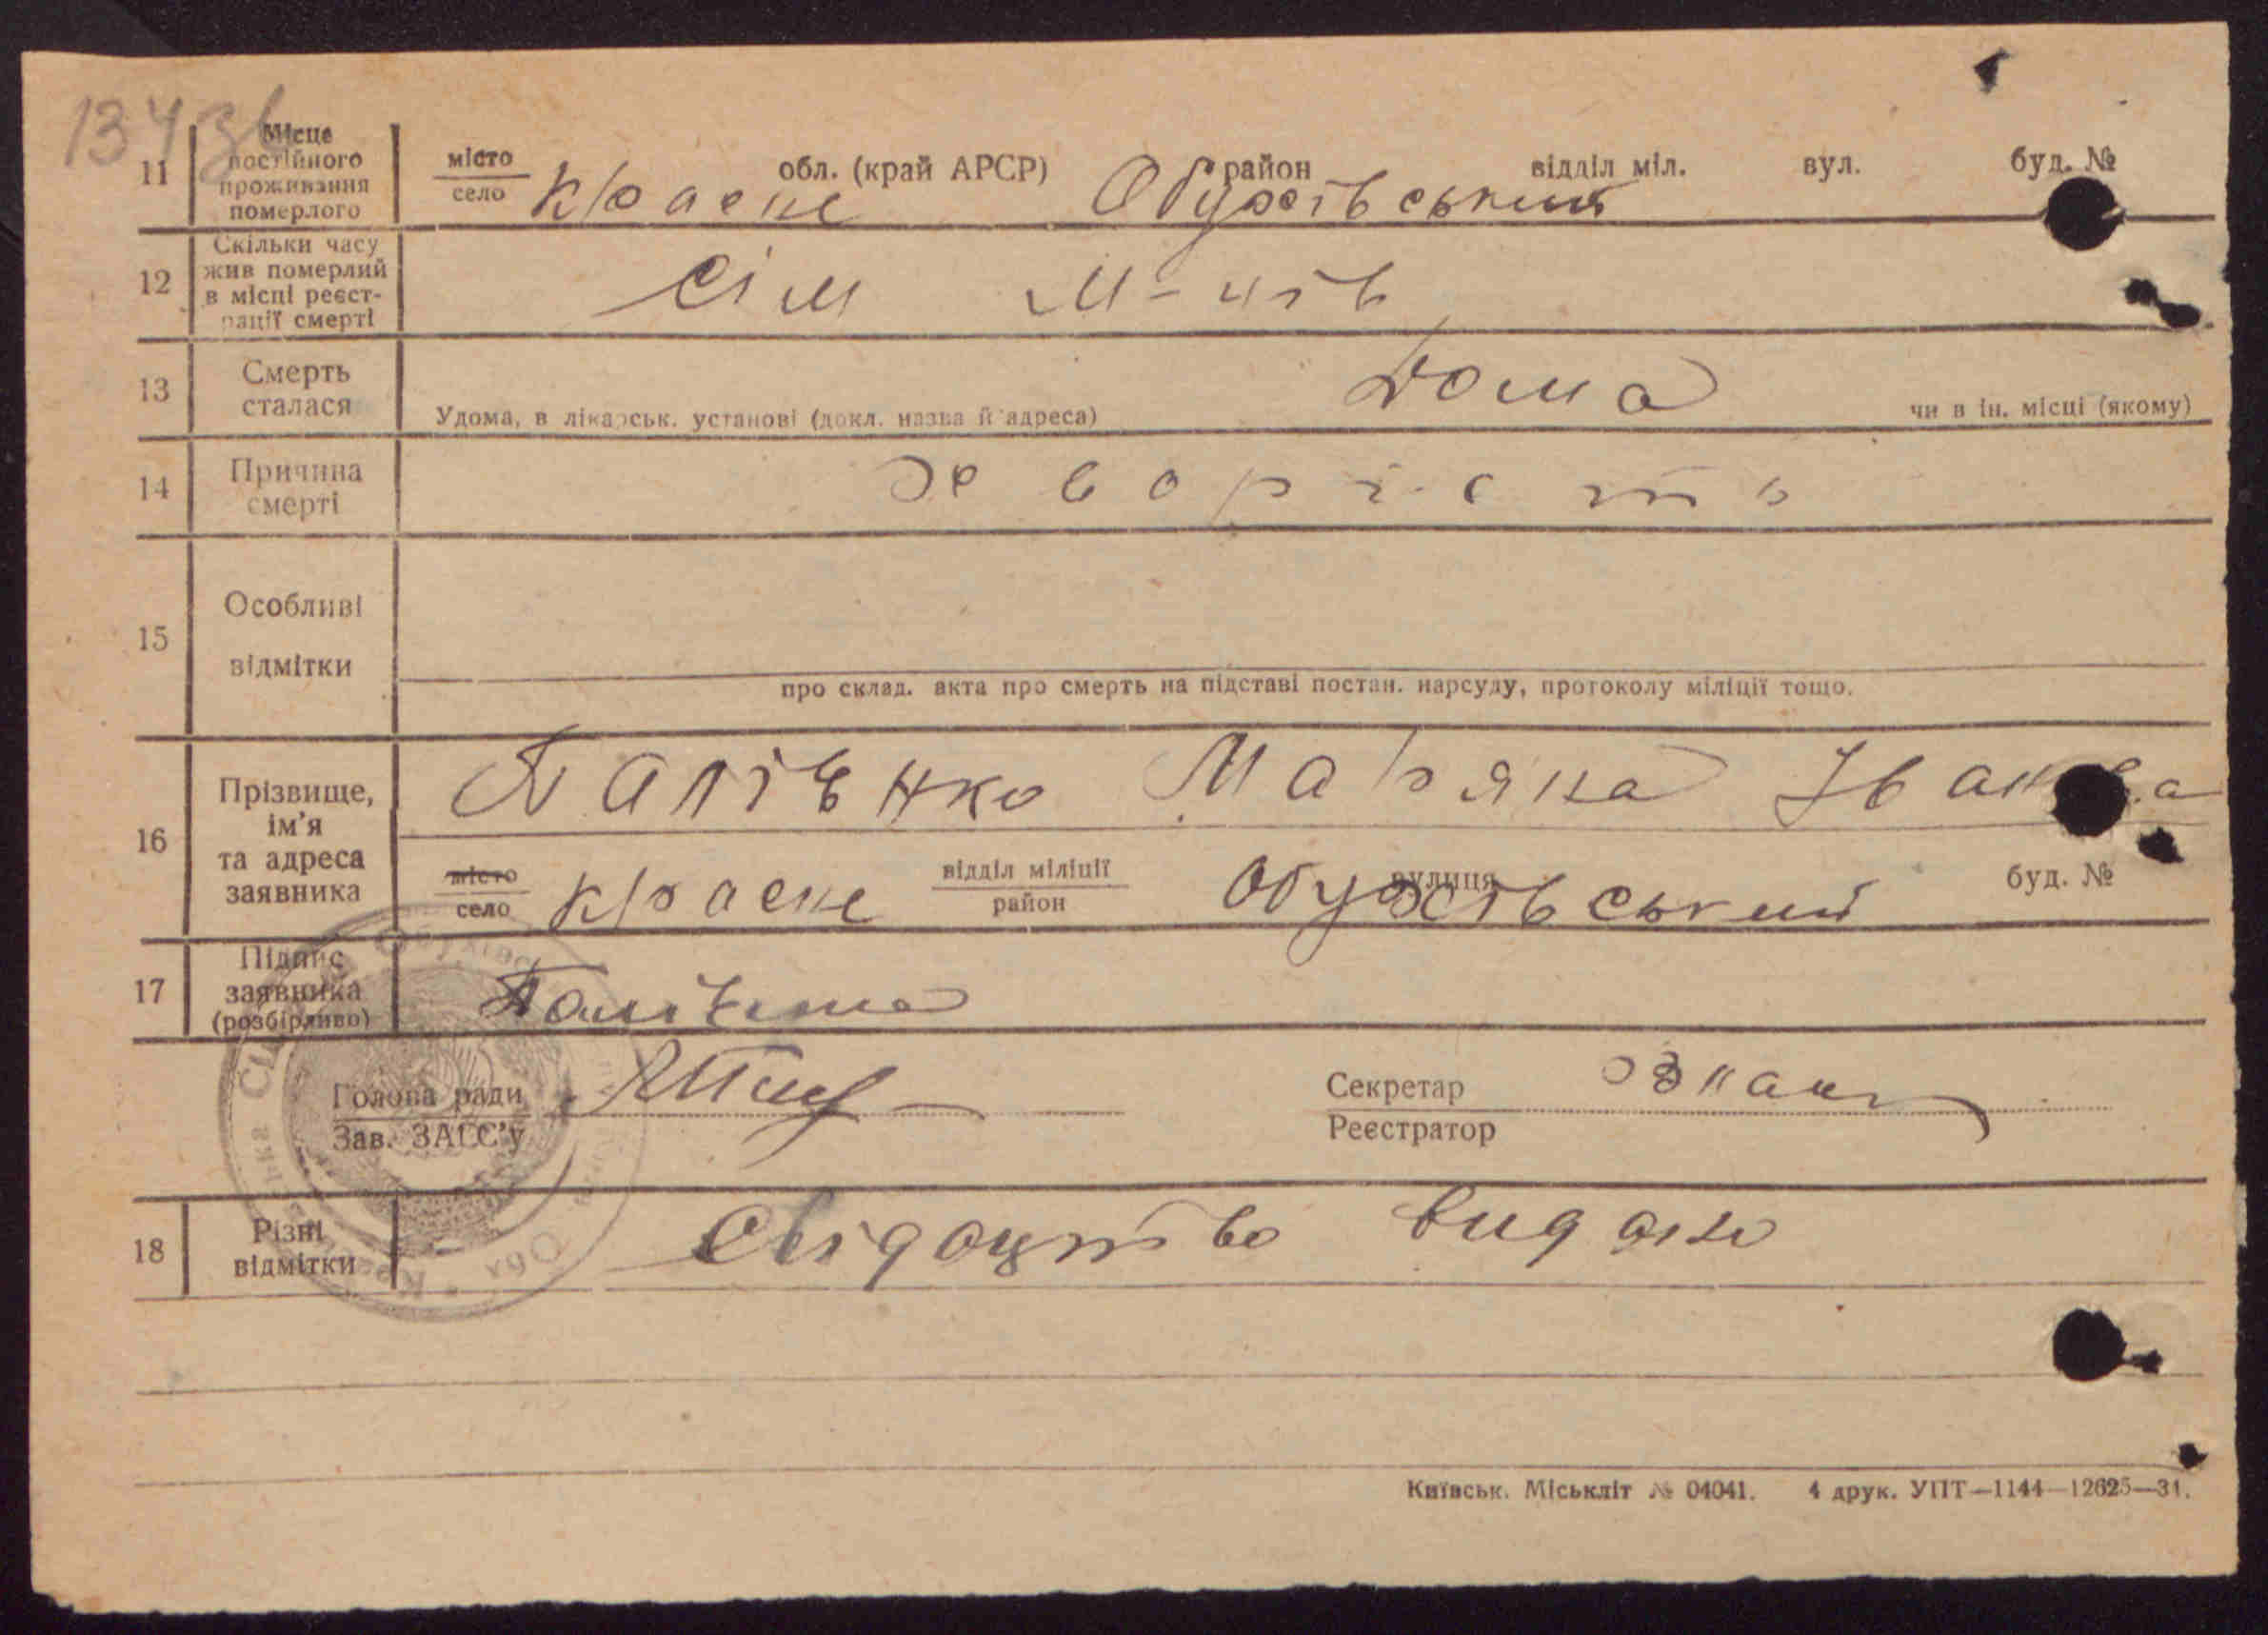 134 зв
11 Місце постійного проживання померлого
місто село Краснe обл. (край АРСР) Обухівський район відділ міл. вул. буд. №
12 Скільки часу жив померлий в місці реєстрації смерті
сім м-ців
13 Смерть сталася
Удома, в лікарськ. установі (докл. назва й адреса) Дома чи в ін. місці (якому)
14 Причина смерті
хворість
15 Особливі відмітки
про склад. акта про смерть на підставі постан. нарсуду, протоколу міліції тощо.
16 Прізвище, ім'я та адреса заявника
Палієнко Мар'яна Іванова
місто село Краснe відділ міліції район Обухівський вулиця буд. №
17 Підпис заявника (розбірливо)
Голова ради
Зав. ЗАГС'у
Секретар
Реєстратор
18 Різні відмітки
Свідоцтво видано
Київськ. Міськліт № 04041. 4 друк. УПТ—1144—12625—31.